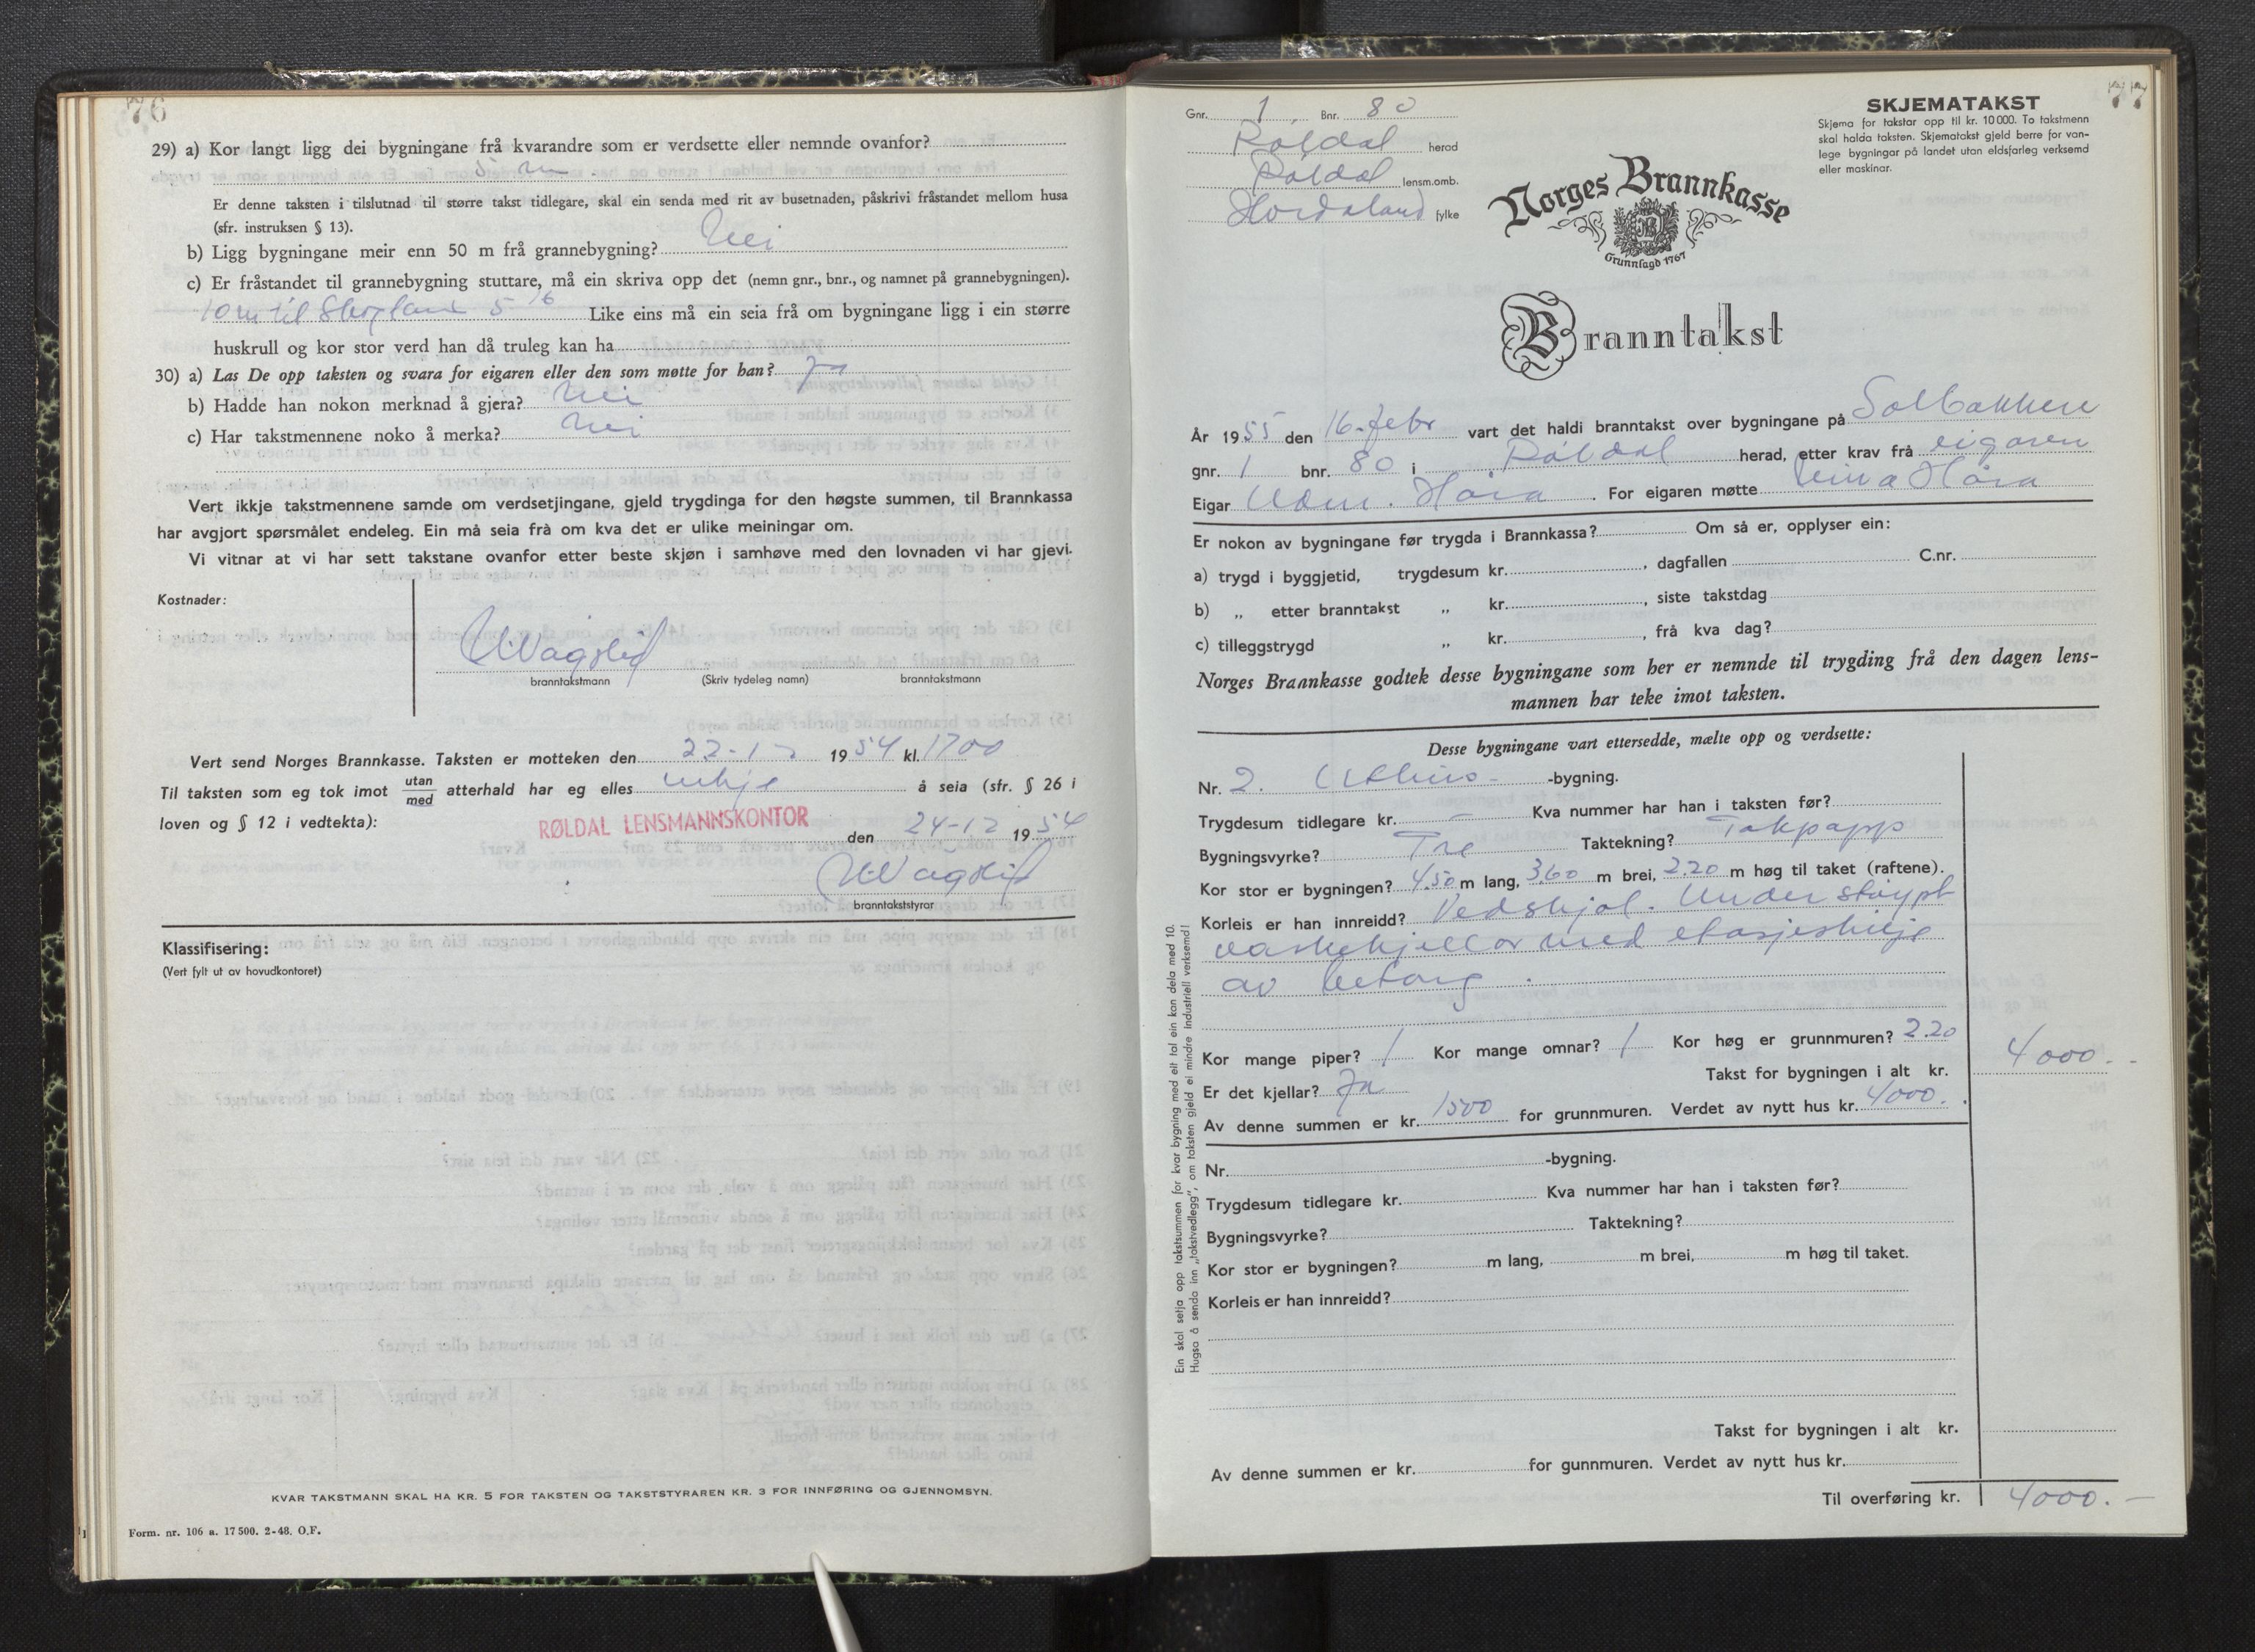 76
29) a) Kor langt ligg dei bygningane frå kvarandre som er verdsette eller nemnde ovanfor?
5 m.
Er denne taksten i tilslutnad til større takst tidlegare, skal ein senda med rit av busetnaden, påskrivi fråstandet mellom husa
(sfr. instruksen § 13).
b) Ligg bygningane meir enn 50 m frå grannebygning? Nei
c) Er fråstandet til grannebygning stuttare, må ein skriva opp det (nemn gnr., bnr., og namnet på grannebygningen).
10 m til 5 Like eins må ein seia frå om bygningane ligg i ein større
huskrull og kor stor verd han då truleg kan ha
30) a) Las De opp taksten og svara for eigaren eller den som møtte for han? Ja
b) Hadde han nokon merknad å gjera? Nei
c) Har takstmennene noko å merka? Nei
Vert ikkje takstmennene samde om verdsetjingane, gjeld trygdinga for den høgste summen, til Brannkassa
har avgjort spørsmålet endeleg. Ein må seia frå om kva det er ulike meiningar om.
Vi vitnar at vi har sett takstane ovanfor etter beste skjøn i samhøve med den lovnaden vi har gjevi.
Kostnader:
branntakstmann (Skriv tydeleg namn) branntakstmann
Vert send Norges Brannkasse. Taksten er motteken den 22-12 1954 kl. 1700
Til taksten som eg tok imot utan/med atterhald har eg elles inkje å seia (sfr. § 26 i
loven og § 12 i vedtekta):
RØLDAL LENSMANNSKONTOR den 24-12 1954
branntakststyrar
Klassifisering:
(Vert fylt ut av hovudkontoret)
KVAR TAKSTMANN SKAL HA KR. 5 FOR TAKSTEN OG TAKSTSTYRAREN KR. 3 FOR INNFØRING OG GJENNOMSYN.
Form. nr. 106 a. 17 500. 2-48. O.F.
77
Gnr. 1 Bnr. 80
Røldal herad
Røldal lensm.omb.
Hordaland fylke
SKJEMATAKST
Skjema for takstar opp til kr. 10 000. To takstmenn
skal halda taksten. Skjematakst gjeld berre for van-
lege bygningar på landet utan eldsfarleg verksemd
eller maskinar.
Norges Brannkasse
Grunnlagd 1767
Branntakst
År 1955 den 16. febr vart det haldi branntakst over bygningane på Solbakken
gnr. 1 bnr. 80 i Røldal herad, etter krav frå eigaren
Eigar Håra. For eigaren møtte Håra
Er nokon av bygningane før trygda i Brannkassa? Om så er, opplyser ein:
a) trygd i byggjetid, trygdesum kr. , dagfallen C.nr.
b) „ etter branntakst „ kr. , siste takstdag
c) tilleggstrygd „ kr. , frå kva dag?
Norges Brannkasse godtek desse bygningane som her er nemnde til trygding frå den dagen lens-
mannen har teke imot taksten.
Desse bygningane vart ettersedde, mælte opp og verdsette:
Nr. 2. Uthus- -bygning.
Trygdesum tidlegare kr. – Kva nummer har han i taksten før?
Bygningsvyrke? Tre Taktekning? Takpapp
Kor stor er bygningen? 4.50 m lang, 3.60 m brei, 2.20 m høg til taket (raftene).
Korleis er han innreidd? Vedskjol. Under støypt
vaskekjellar med etasjeskilje
av betong.
Kor mange piper? 1 Kor mange omnar? 1 Kor høg er grunnmuren? 2.20
Er det kjellar? Ja Takst for bygningen i alt kr. 4000.-
Av denne summen er kr. 1500 for grunnmuren. Verdet av nytt hus kr. 4000.
Nr. -bygning.
Trygdesum tidlegare kr. Kva nummer har han i taksten før?
Bygningsvyrke? Taktekning?
Kor stor er bygningen? m lang, m brei, m høg til taket.
Korleis er han innreidd?
Takst for bygningen i alt kr.
Av denne summen er kr. for gunnmuren. Verdet av nytt hus kr.
Til overføring kr. 4000.-
Ein skal setja opp takstsummen for kvar bygning med eit tal ein kan dela med 10.
Hugsa å senda inn „takstvedlegg", om taksten gjeld ei mindre industriell verksemd!